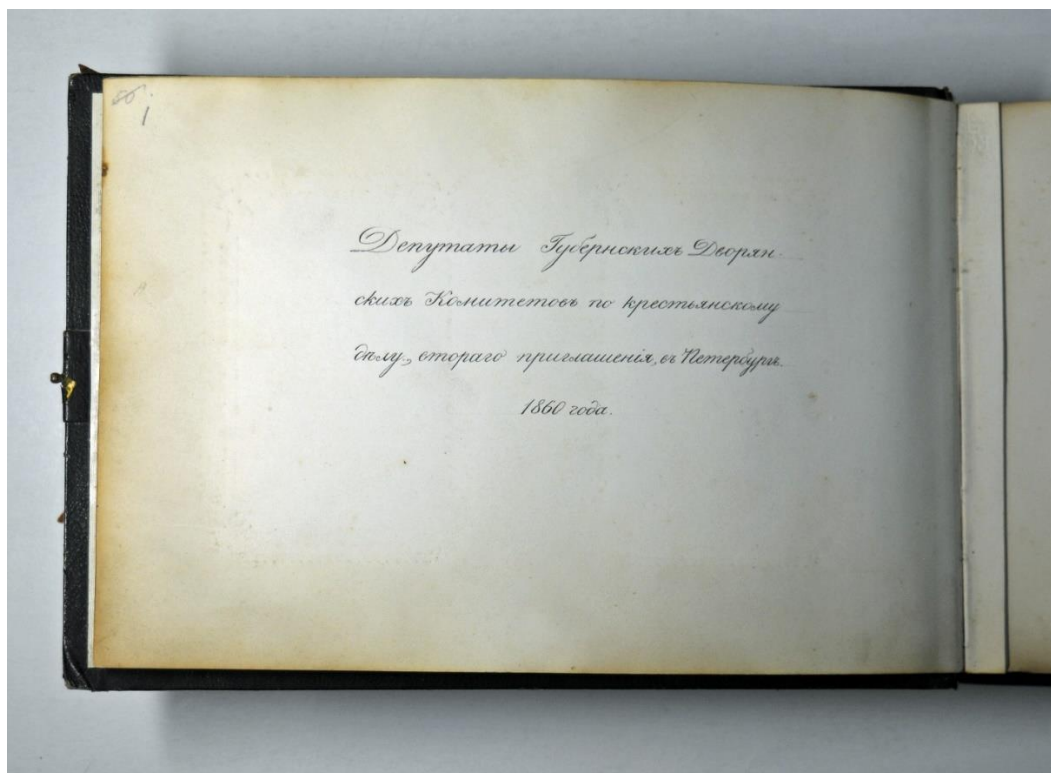 1
Депутаты Губернскихъ Дворян-
скихъ Комитетовъ по крестьянскому
дѣлу, втораго приглашенія, въ Петербургѣ.
1860 года.